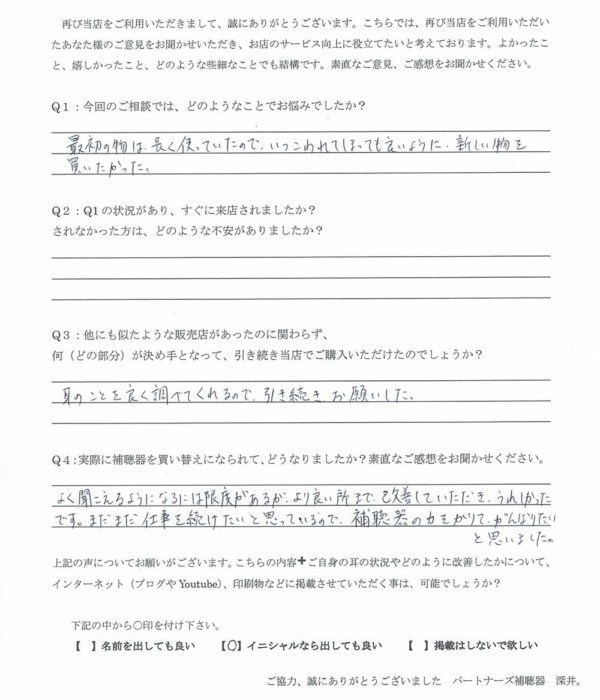 再び当店をご利用いただきまして、誠にありがとうございます。こちらでは、再び当店をご利用いただい
たあなた様のご意見をお聞かせいただき、お店のサービス向上に役立てたいと考えております。よかったこ
と、嬉しかったこと、どのような些細なことでも結構です。素直なご意見、ご感想をお聞かせください。
Q1：今回のご相談では、どのようなことでお悩みでしたか？
最初の物は、長く使っていたので、いつこわれてしまっても良いように、新しい物を
買いたかった。
Q2：Q1の状況があり、すぐに来店されましたか？
されなかった方は、どのような不安がありましたか？
Q3：他にも似たような販売店があったのに関わらず、
何（どの部分）が決め手となって、引き続き当店でご購入いただけたのでしょうか？
耳のことを良く調べてくれるので、引き続き、お願いした。
Q4:実際に補聴器を買い替えになられて、どうなりましたか？素直なご感想をお聞かせください。
よく聞こえるようになるには限度があるが、より良い所まで、改善していただき、うれしかった
です。まだまだ仕事を続けたいと思っているので、補聴器の力をかりて、がんばりたい
と思いました。
上記の声についてお願いがございます。こちらの内容+ご自身の耳の状況やどのように改善したかについて、
インターネット（ブログやYoutube)、印刷物などに掲載させていただく事は、可能でしょうか？
下記の中から○印を付け下さい。
【 】名前を出しても良い 【○】イニシャルなら出しても良い 【 】掲載はしないで欲しい
ご協力、誠にありがとうございました パートナーズ補聴器 深井。